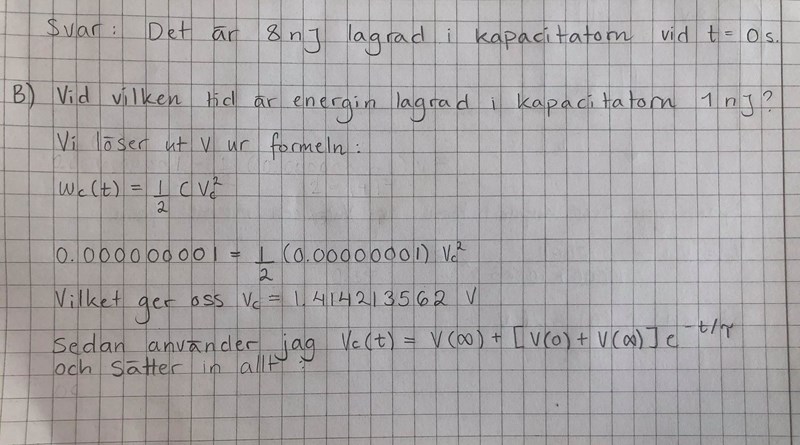 Svar: Det är 8 nJ lagrad i kapacitatorn vid t = 0 s.
B) Vid vilken tid är energin lagrad i kapacitatorn 1 nJ?
Vi löser ut V ur formeln:
Wc(t) = 1/2 C Vc²
0.000000001 = 1/2 (0.00000001) Vc²
Vilket ger oss Vc = 1.414213562 V
Sedan använder jag Vc(t) = V(∞) + [V(0) + V(∞)] e^-t/τ
och sätter in allt: